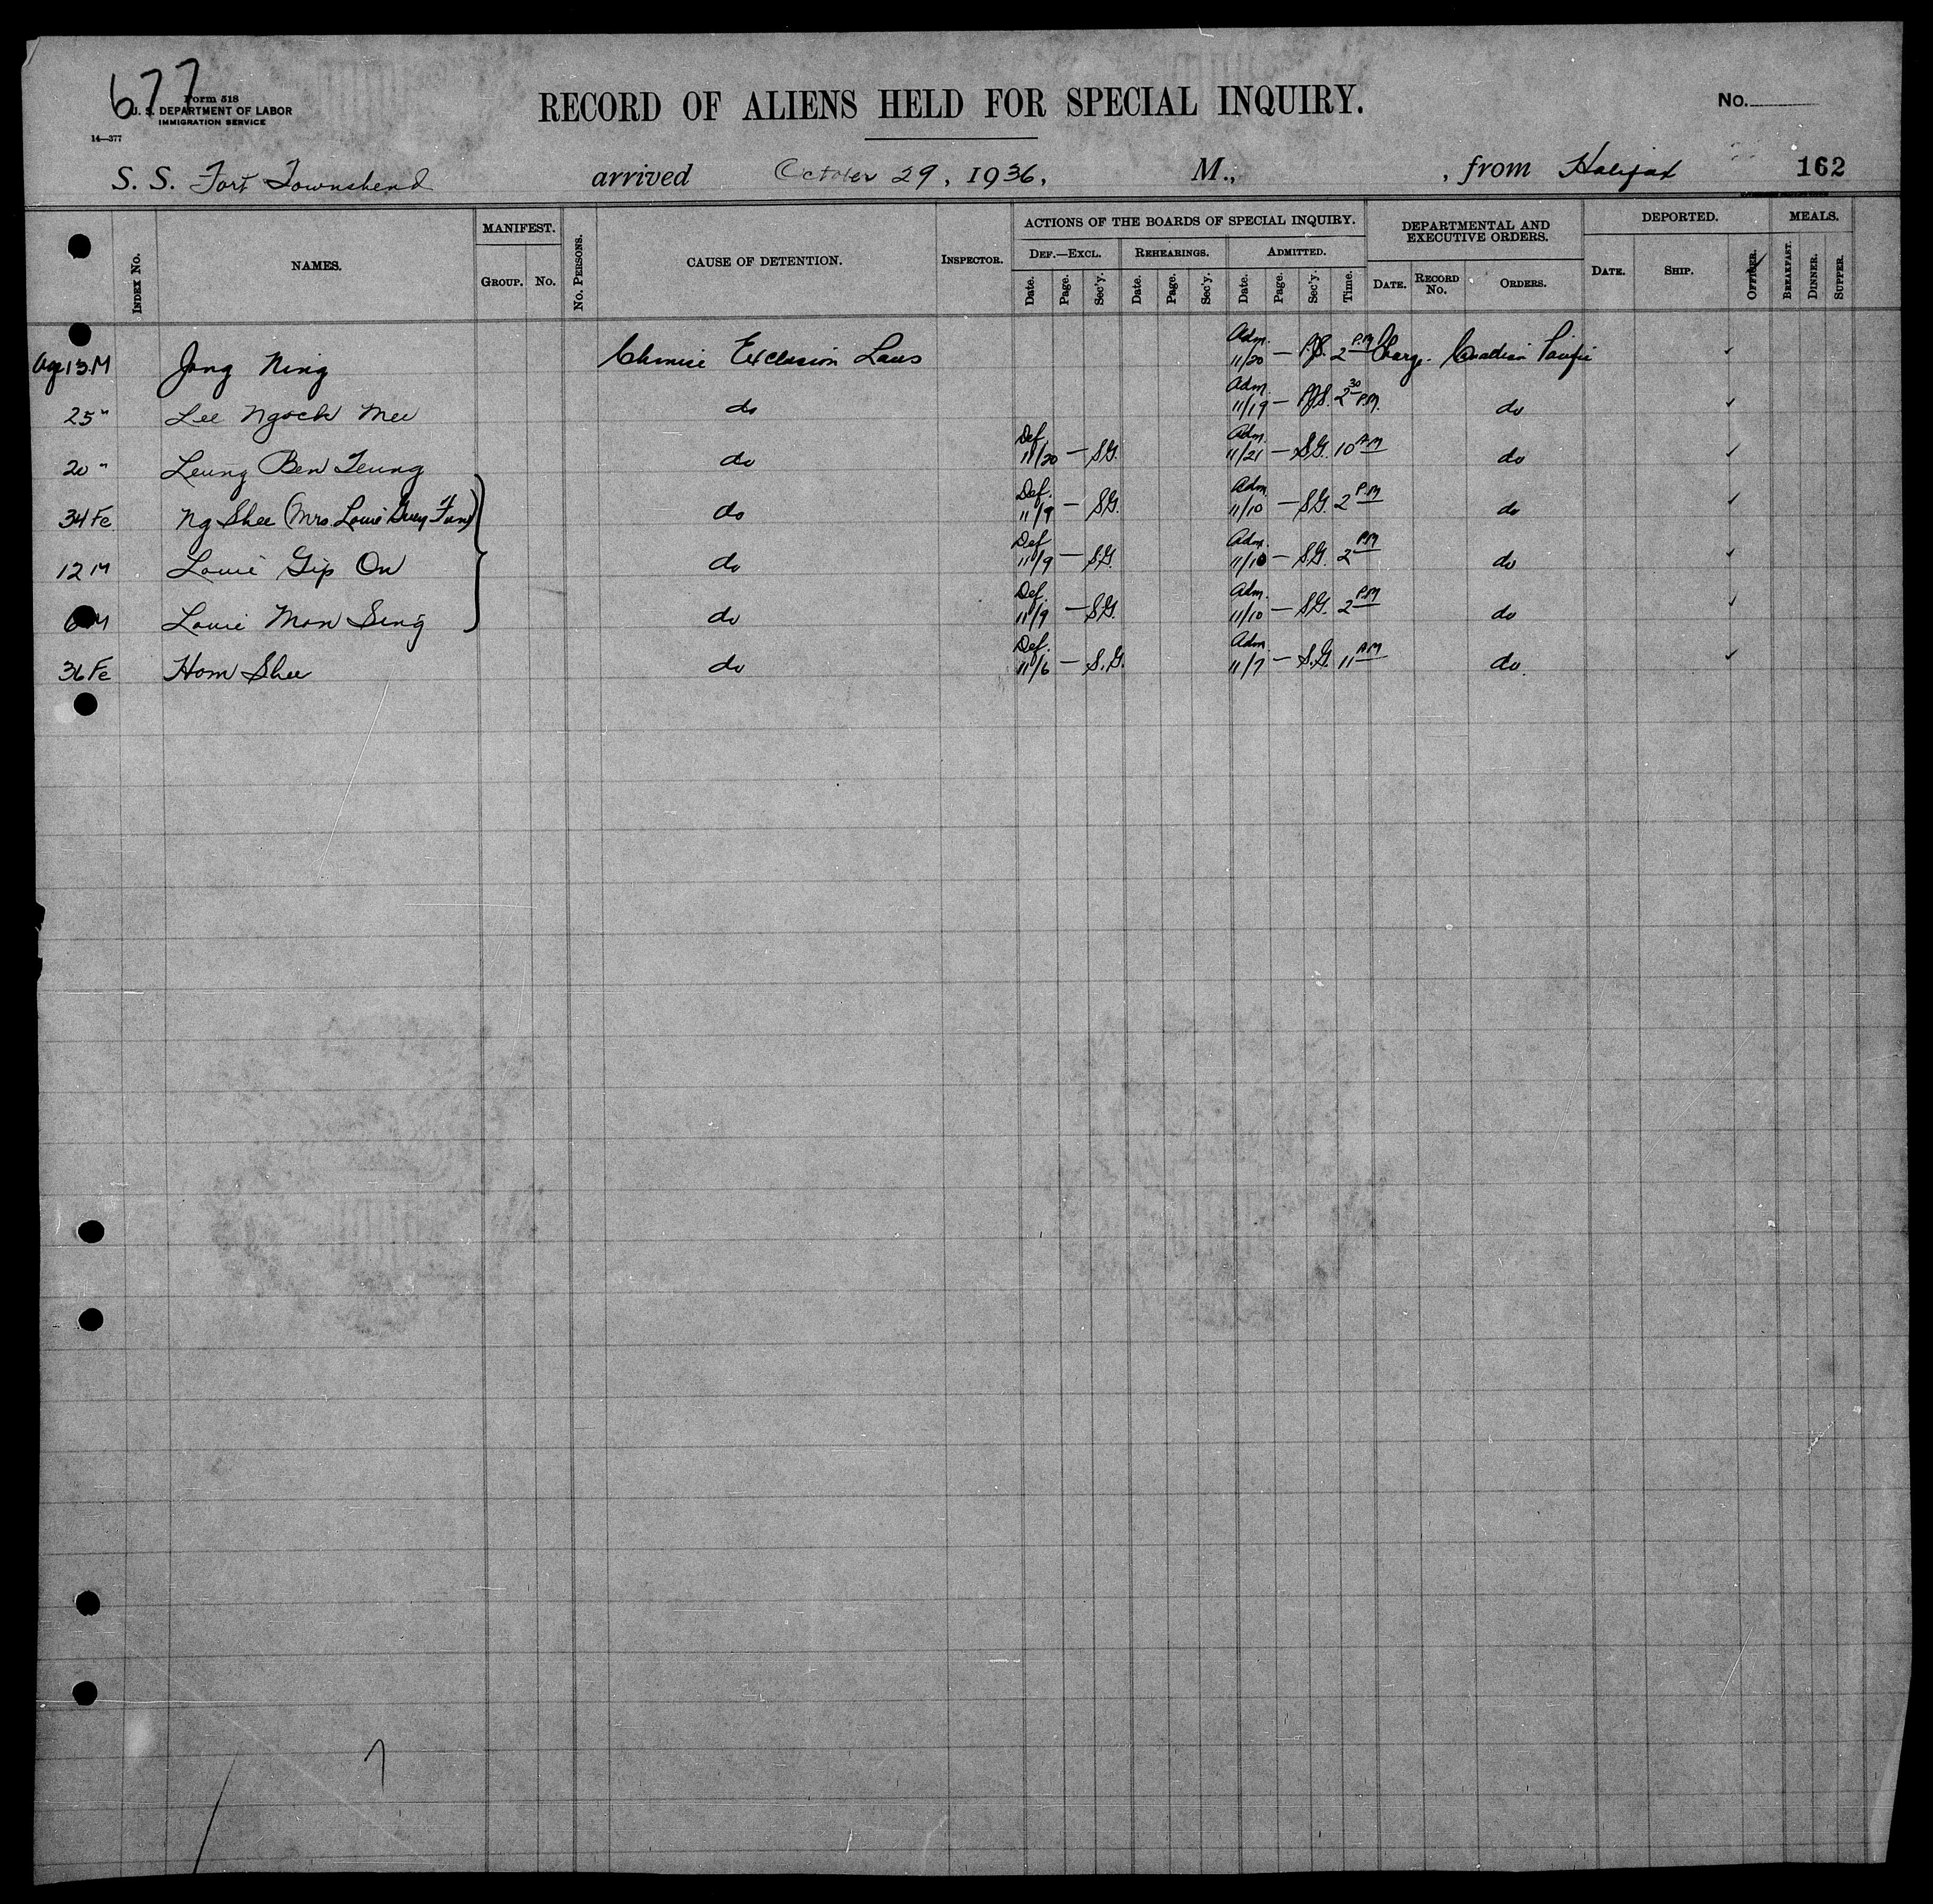 677
Form 518
U. S. DEPARTMENT OF LABOR
IMMIGRATION SERVICE
14—377
RECORD OF ALIENS HELD FOR SPECIAL INQUIRY.
No.
S. S. Fort Townshend arrived October 29, 1936, M., , from Halifax 162
INDEX No. NAMES. MANIFEST. GROUP. No. No. PERSONS. CAUSE OF DETENTION. INSPECTOR. ACTIONS OF THE BOARDS OF SPECIAL INQUIRY. DEF.—EXCL. Date. Page. Sec'y. REHEARINGS. Date. Page. Sec'y. ADMITTED. Date. Page. Sec'y. Time. DEPARTMENTAL AND EXECUTIVE ORDERS. DATE. RECORD No. ORDERS. DEPORTED. DATE. SHIP. OFFICER. MEALS. BREAKFAST. DINNER. SUPPER.
Age 13 M Jong Ning Chinese Exclusion Laws Adm. 11/20 — 2 PM Charge Canadian Pacific ✓
25 " Lee Ngock Mee do Adm. 11/19 — 2 30 P.M. do ✓
20 " Leung Ben Teung do Def. 11/20 — S.G. Adm. 11/21 — S.G. 10 AM do ✓
34 Fe Ng Shee (Mrs. Louie Fun) do Def. 11/9 — S.G. Adm. 11/10 — S.G. 2 PM do ✓
12 M Louie Gip On do Def. 11/9 — S.G. Adm. 11/10 — S.G. 2 PM do ✓
6 M Louie Mon Sing do Def. 11/9 — S.G. Adm. 11/10 — S.G. 2 PM do ✓
36 Fe Hom Shee do Def. 11/6 — S.G. Adm. 11/7 — S.G. 11 AM do ✓
7